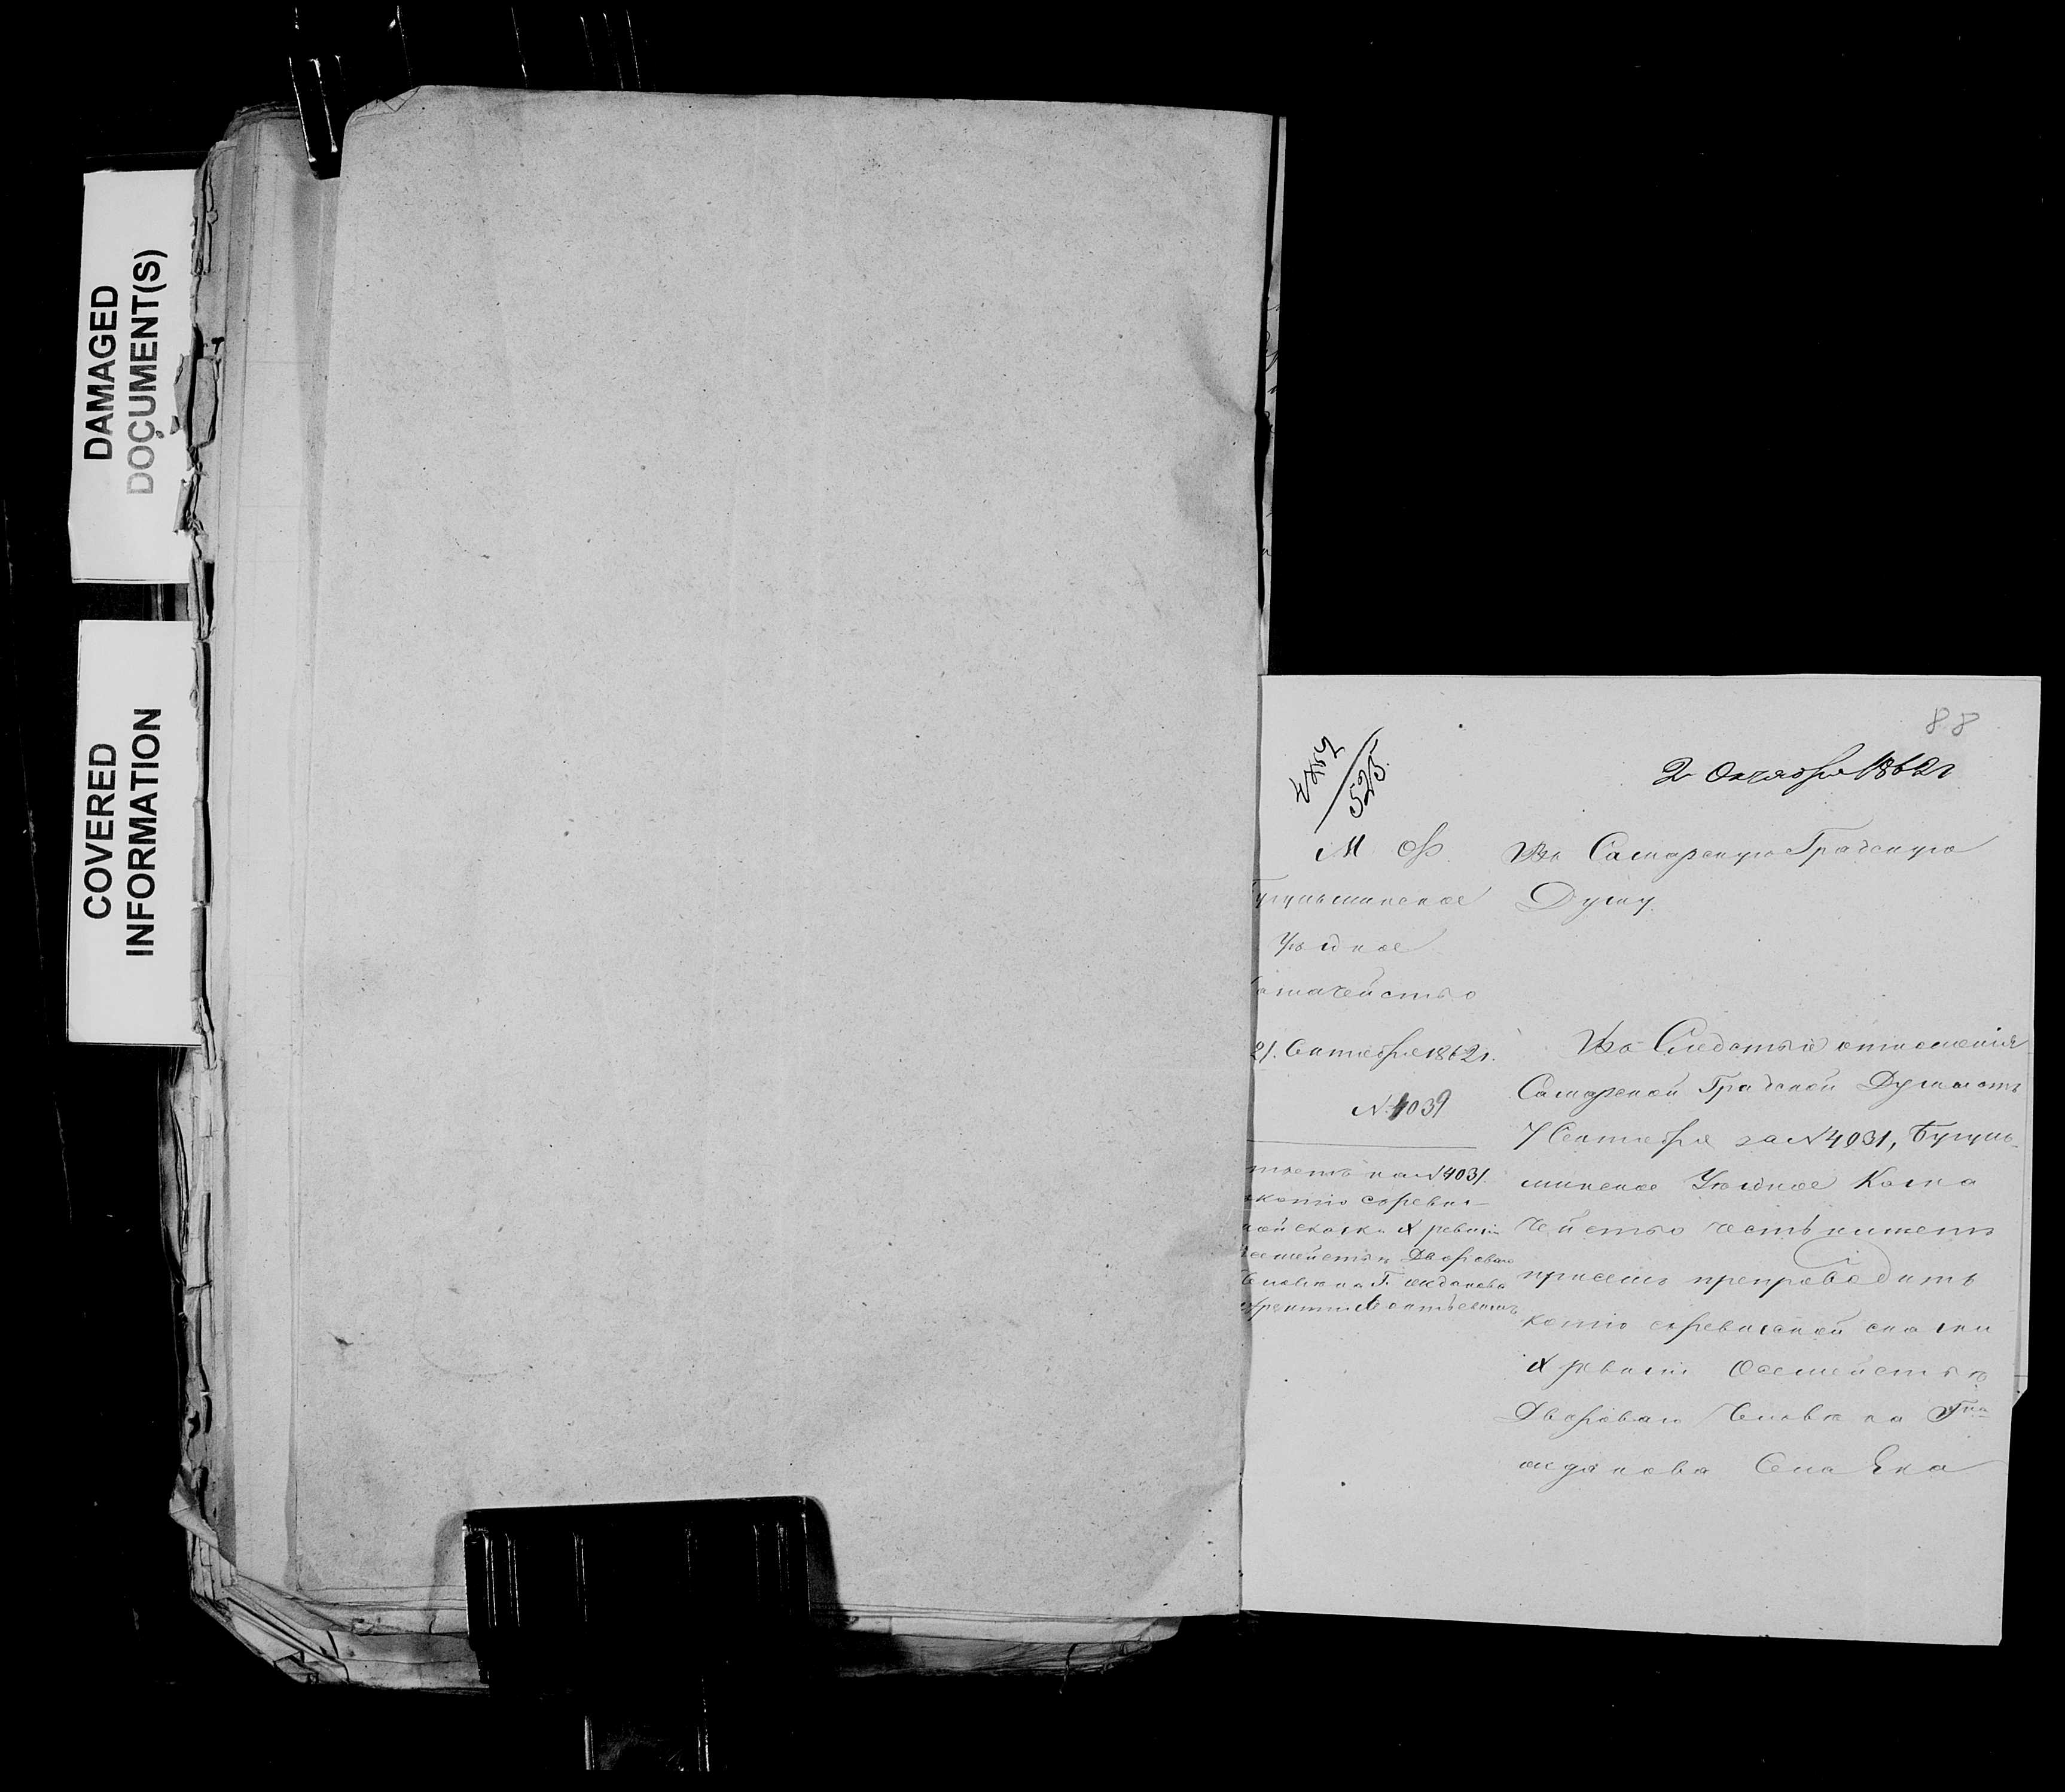 DAMAGED
DOCUMENT(S)
COVERED
INFORMATION
88
525
2 Октября 1862 г
М Ф.
угульминское
Уѣздное
значейство
21. Сентября 1862 г.
№ 4039
на № 4031
копію съ ревиз-
ной сказки X ревизіи
семействѣ Двороваго
Человѣка Г.
Въ Самарскую Градскую
Думу.
Въ Слѣдствіе отношенія
Самарской Градской Думы отъ
7 Сентября за № 4031, Бугуль-
минское Уѣздное Казна
чейство честь имѣетъ
при семъ препроводить
копію съ ревизской сказки
X ревизіи о семействѣ
Двороваго Человѣка Г на